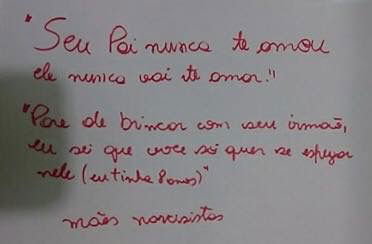 "Seu Pai nunca te amou
ele nunca vai te amar!"
"Pare de brincar com seu irmão,
eu sei que voce só quer se esfregar
nele (eu tinha 8 anos)"
mães narcisistas